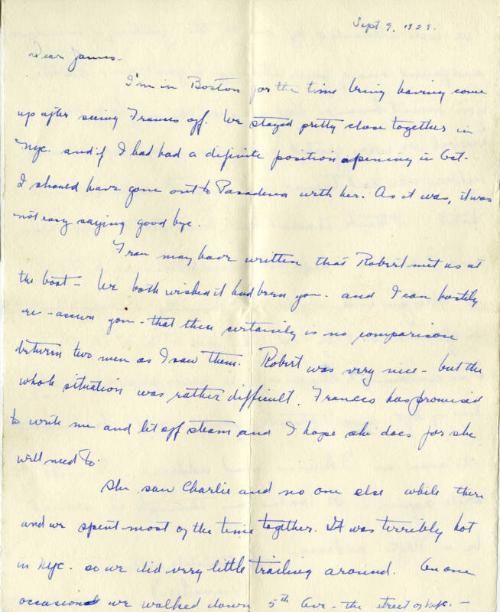 Sept 9, 1929.
Dear James -
I'm in Boston for the time being having come
up after seeing Frances off. We stayed pretty close together in
NYC. and if I had had a definite position opening in Oct.
I should have gone out to Pasadena with her. As it was, it was
not easy saying good bye.
Fran may have written that Robert met us at
the boat - We both wished it had been you - and I can hastily
re-assure you - that there certainly is no comparison
between two men as I saw them. Robert was very nice - but the
whole situation was rather difficult. Frances has promised
to write me and let off steam and I hope she does for she
will need to.
She saw Charlie and no one else while there
and we spent most of the time together. It was terribly hot
in NYC. so we did very little tracking around. On one
occasion we walked down 5th Ave - the street of NYC. -